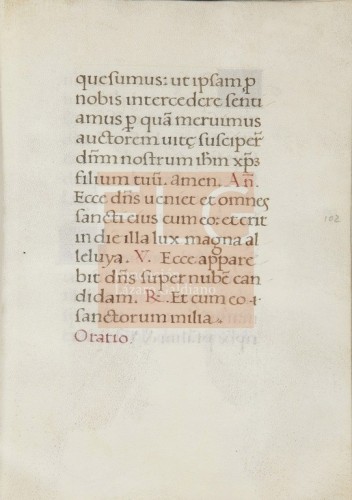 quesumus: ut ipsam p̱
nobis intercedere senti
amus p̱ quã meruimus
auctorem uitę susciper̃
dñm nostrum ihm̃ xp̃s
filium tuũ. amen. A ñ.
Ecce dñs ueniet et omnes
sancti eius cum eo: et erit
in die illa lux magna al
leluya. V. Ecce appare
bit dñs super nubẽ can
didam. R. Et cum eo .
sanctorum milia.
Oratio
102